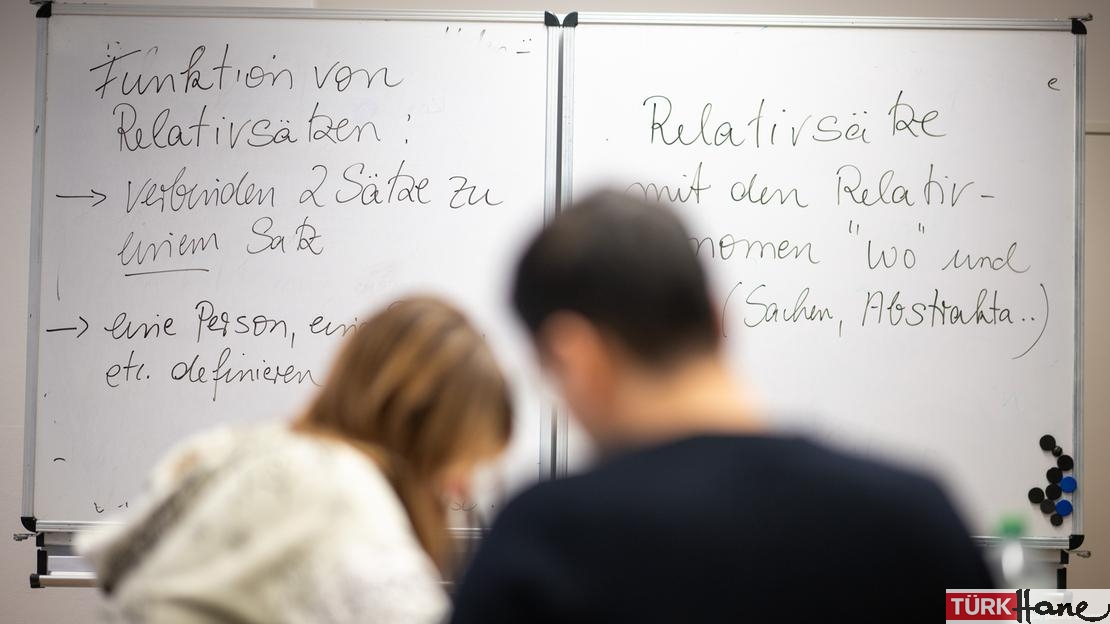 Funktion von
Relativsätzen :
→ verbinden 2 Sätze zu
einem Satz
→ eine Person,
etc. definieren
e
Relativsätze
mit den Relativ-
nomen "wo" und
(Sachen, Abstrakta..)
TÜRKHane